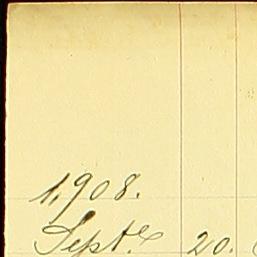 1,908.
Septr. 20.